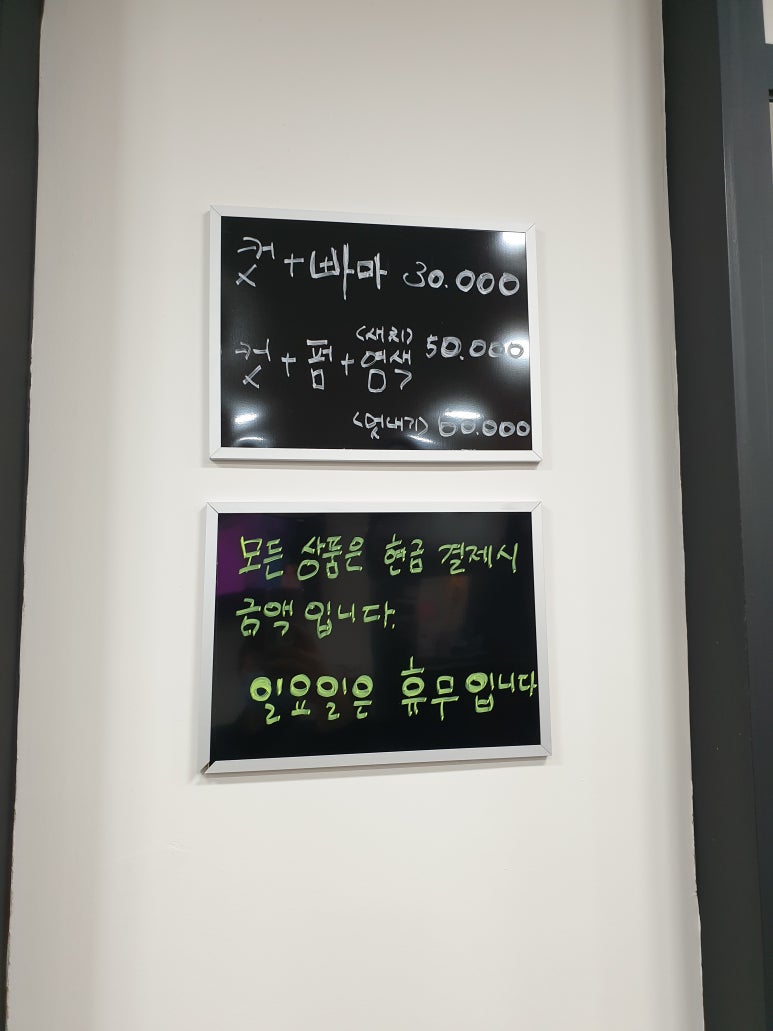 컷 + 빠마 30.000
(새치)
컷 + 펌 + 염색 50.000
(멋내기) 60.000
모든 상품은 현금 결제시
금액 입니다.
일요일은 휴무입니다